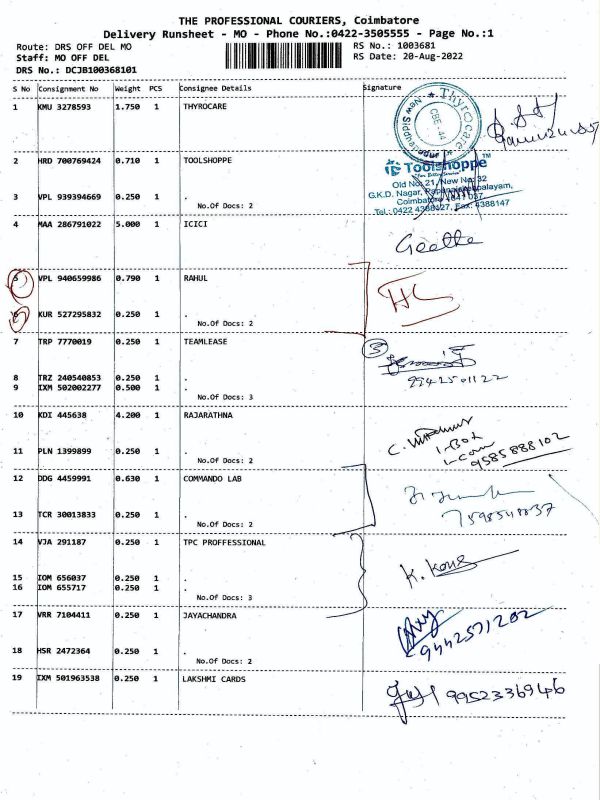 THE PROFESSIONAL COURIERS, Coimbatore
Delivery Runsheet - MO - Phone No.:0422-3505555 - Page No.:1
Route: DRS OFF DEL MO
RS No.: 1003681
Staff: MO OFF DEL
RS Date: 20-Aug-2022
DRS No.: DCJB100368101
S No Consignment No Weight PCS Consignee Details Signature
1 KMU 3278593 1.750 1 THYROCARE
Thyrocare
CBE - 44
New Siddhapudur
2 HRD 700769424 0.710 1 TOOLSHOPPE
Toolshoppe™
Old No: 21, New No: 32
G.K.D. Nagar, Pappanaickenpalayam,
Coimbatore - 641 037
Tel : 0422 4388127, Fax: 4388147
3 VPL 939394669 0.250 1 .
No.Of Docs: 2
4 MAA 286791022 5.000 1 ICICI
Geetha
5 VPL 940659986 0.790 1 RAHUL
6 KUR 527295832 0.250 1 .
No.Of Docs: 2
7 TRP 7770019 0.250 1 TEAMLEASE
3
9942501122
8 TRZ 240540853 0.250 1 .
9 IXM 502002277 0.500 1 .
No.Of Docs: 3
10 KDI 445638 4.200 1 RAJARATHNA
1-Box
9585888102
11 PLN 1399899 0.250 1 .
No.Of Docs: 2
12 DDG 4459991 0.630 1 COMMANDO LAB
13 TCR 30013833 0.250 1 .
No.Of Docs: 2
14 VJA 291187 0.250 1 TPC PROFFESSIONAL
15 IOM 656037 0.250 1 .
16 IOM 655717 0.250 1 .
No.Of Docs: 3
17 VRR 7104411 0.250 1 JAYACHANDRA
9442571202
18 HSR 2472364 0.250 1 .
No.Of Docs: 2
19 IXM 501963538 0.250 1 LAKSHMI CARDS
9952336946